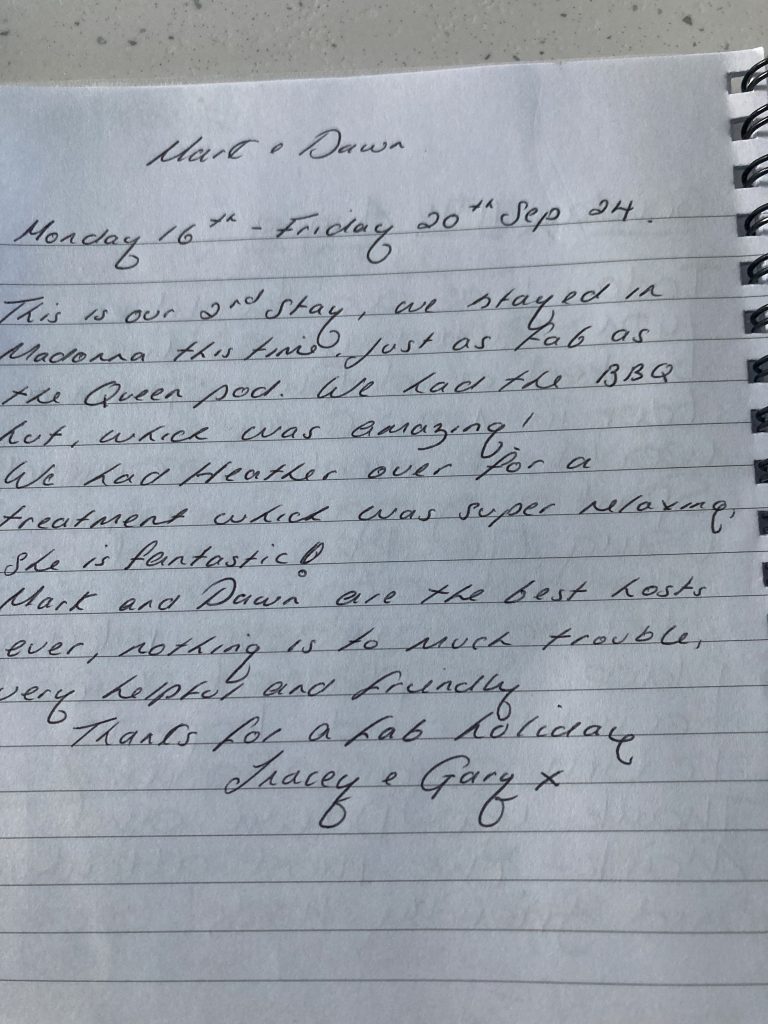 Mark & Dawn
Monday 16th - Friday 20th Sep 24.
This is our 2nd stay, we stayed in
Madonna this time. Just as fab as
the Queen pod. We had the BBQ
hut, which was amazing!
We had Heather over for a
treatment which was super relaxing,
she is fantastic!
Mark and Dawn are the best hosts
ever, nothing is to much trouble,
very helpful and friendly
Thanks for a fab holiday
Tracey & Gary x